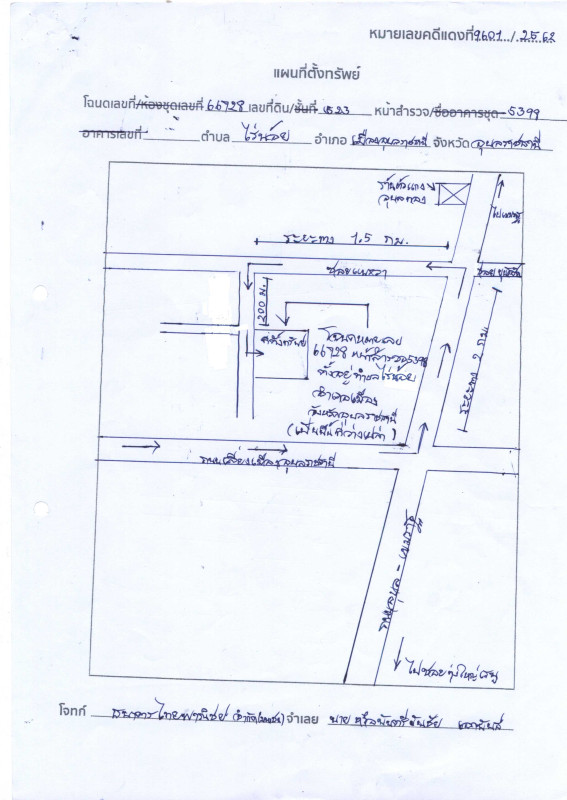 หมายเลขคดีแดงที่ 9601../.2562
แผนที่ตั้งทรัพย์
โฉนดเลขที่/ห้องชุดเลขที่ 66928 เลขที่ดิน/ชั้นที่ 1523 หน้าสำรวจ/ชื่ออาคารชุด 5399
อาคารเลขที่ ตำบล ไร่น้อย อำเภอ เมืองอุบลราชธานี จังหวัด อุบลราชธานี
อุบลทอง
ระยะทาง 1.5 กม.
ซอย
200 ม.
ที่ตั้งทรัพย์
โฉนดหมายเลข
66928 หน้าสำรวจ 5399
ตั้งอยู่ ตำบลไร่น้อย
อำเภอเมือง
จังหวัดอุบลราชธานี
(เป็นที่ว่างเปล่า)
ระยะทาง 2 กม.
ถนนเลี่ยงเมืองอุบลราชธานี
ถนนอุบล -
ไปซอย
โจทก์ ธนาคารไทยพาณิชย์ จำกัด (มหาชน) จำเลย นาย